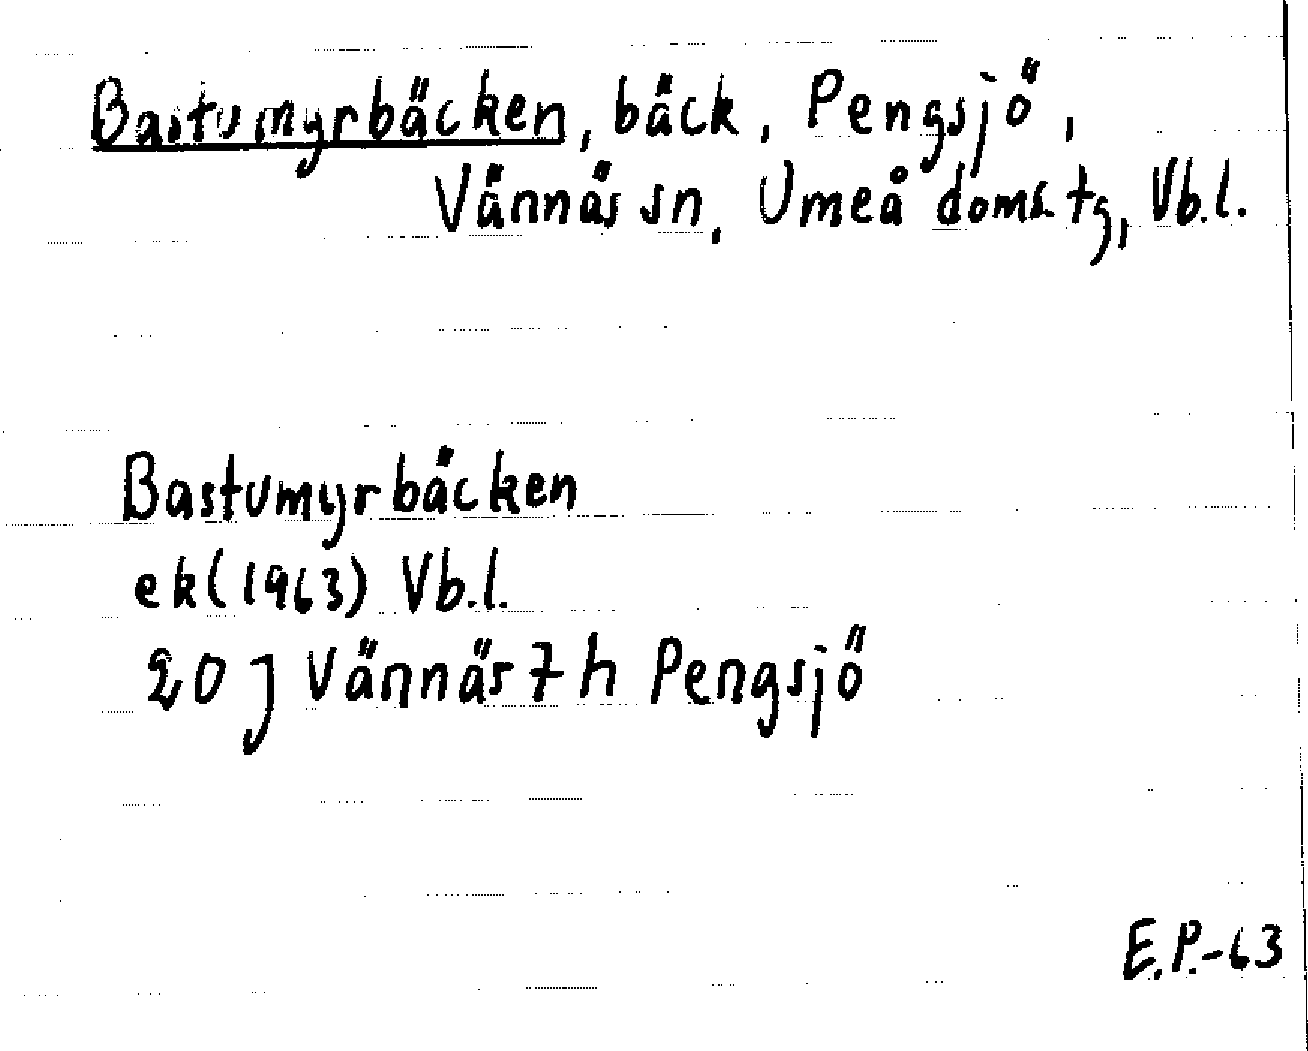 Bastumyrbäcken, bäck, Pengsjö,
Vännäs sn, Umeå doms.tg, Vb.l.
Bastumyrbäcken
ek(1963) Vb.l.
20 J Vännäs 7 h Pengsjö
E.P.-63